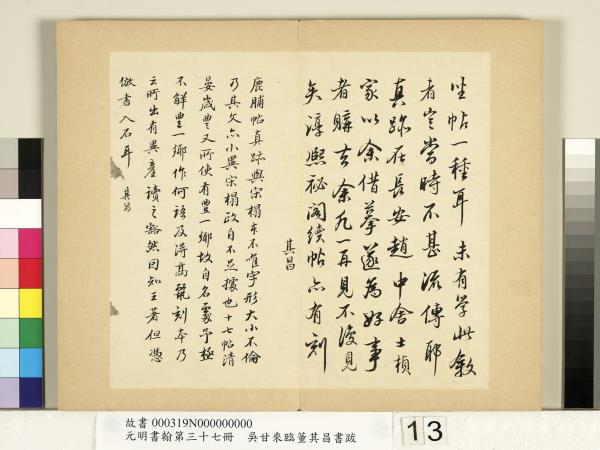 坐帖一種耳未有學此叙
者豈當時不甚流傳耶
真跡在長安趙中舍士楨
家以余借摹遂為好事
者購去余凡一再見不復見
矣淳熙祕閣續帖亦有刻
其昌
鹿脯帖真跡與宋榻本不唯字形大小不倫
乃其文亦小異宋榻政自不足據也十七帖清
晏歲豊又所使有豊一鄉故自名處予極
不解豊一鄉作何語及得高麗刻本乃
云所出有異產讀之豁然因知王著但憑
倣書入石耳 其昌
故書 000319N000000000
元明書翰第三十七冊 吳甘來臨董其昌書跋
13